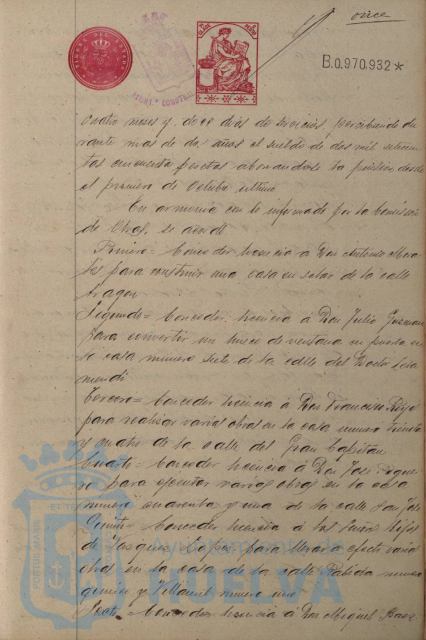 once
B.0.970.932*
cuatro meses y de dias de servicios, percibiendo du
rante mas de dos años el sueldo de dos mil setecien
tas cincuenta pesetas abonandose la pension desde
el primero de Octubre ultimo
En armonia con lo informado por la Comision
de Obras, se acordó
Primero= Conceder licencia á Don Antonio
para construir una casa en solar de la calle
Aragon
Segundo= Conceder licencia á Don Julio Guzman
para convertir un hueco de ventana en puerta en
la casa numero siete de la calle del Doctor
Tercero= Conceder licencia á Don Francisco Rojo
para realizar varias obras en la casa numero treinta
y cuatro de la calle del Gran Capitan
Cuarto= Conceder licencia á Don José
para ejecutar varias obras en la casa
numero cuarenta y uno de la calle San José
Quinto= Conceder licencia á los Señores Hijos
de Vazquez Lopez para llevar á efecto varias
obras en la casa de la calle Rabida numero
quince y numero uno
Sexto= Conceder licencia á Don Miguel Baez
Ayuntamiento de
HUELVA